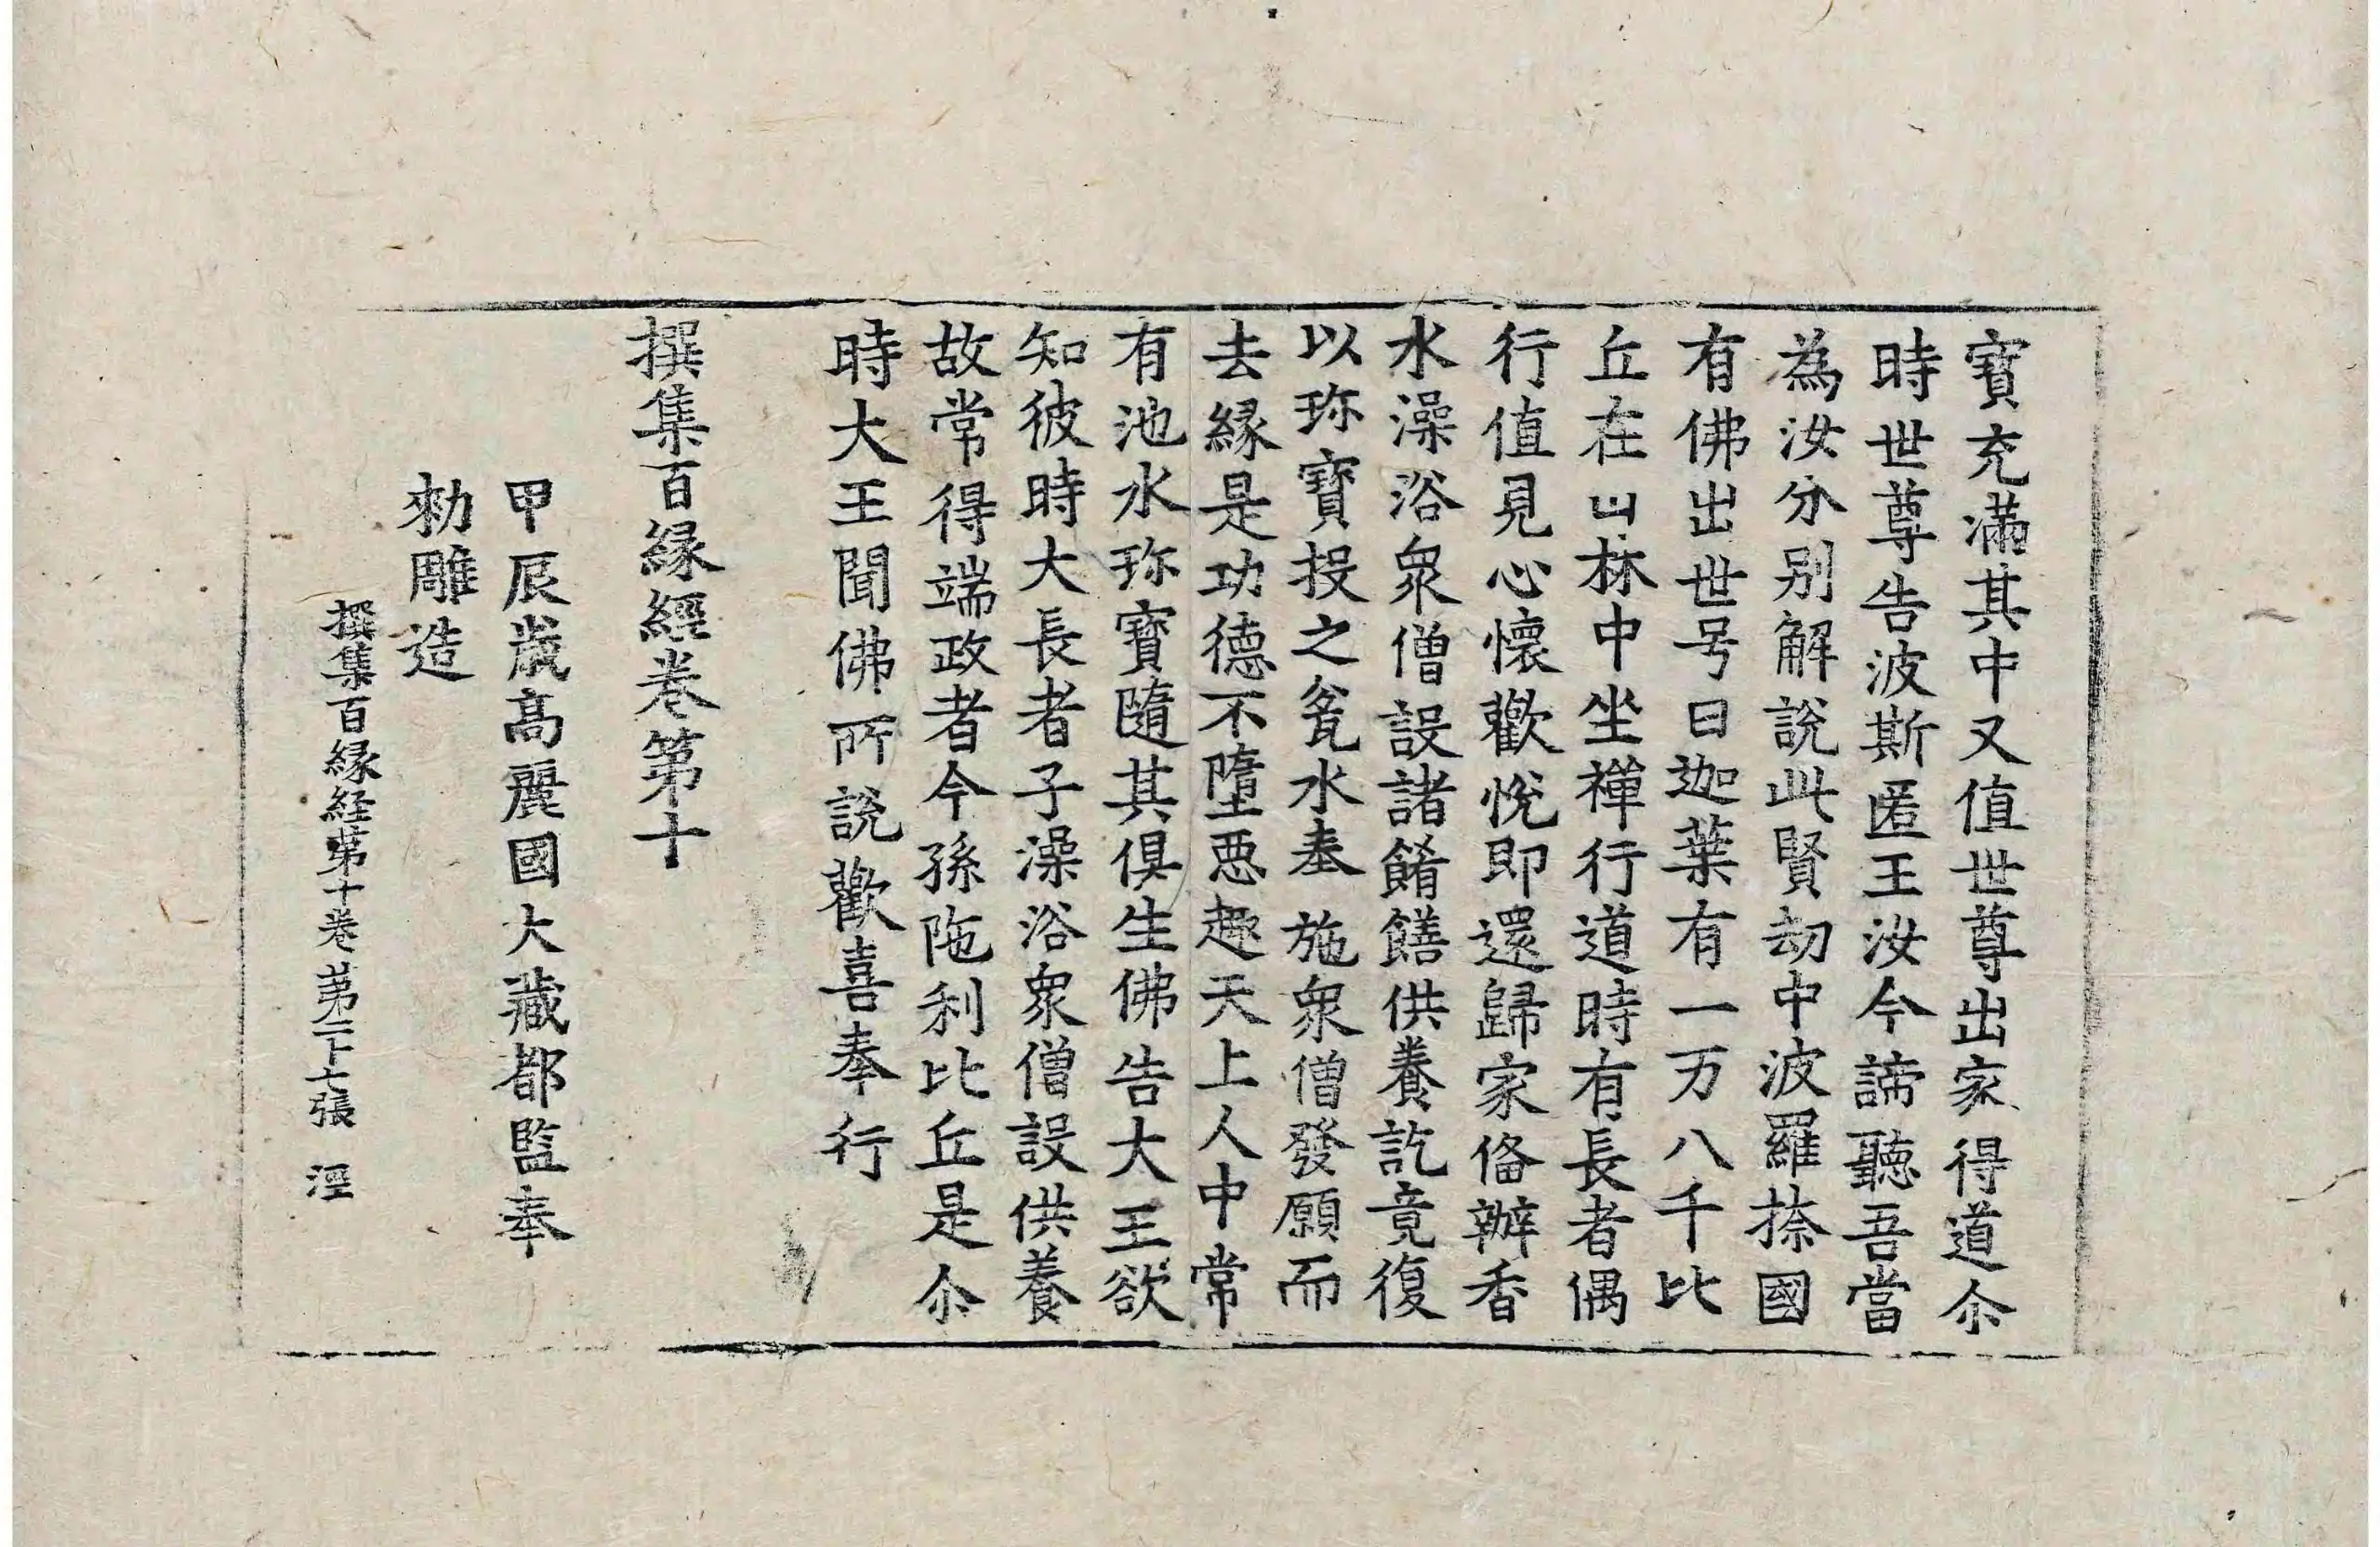 寶充滿其中又值世尊出家得道尒
時世尊告波斯匿王汝今諦聽吾當
為汝分别解說此賢劫中波羅㮈國
有佛出世号曰迦葉有一万八千比
丘在山林中坐禪行道時有長者偶
行值見心懷歡悅即還歸家俻辦香
水澡浴衆僧設諸餚饍供養訖竟復
以珎寶投之瓮水奉施衆僧發願而
去縁是功德不墮惡趣天上人中常
有池水珎寶隨其俱生佛告大王欲
知彼時大長者子澡浴衆僧設供養
故常得端政者今孫陁利比丘是尒
時大王聞佛所說歡喜奉行
撰集百縁經卷第十
甲辰歲高麗國大藏都監奉
勑雕造
撰集百縁経第十卷 第二十七張 湮